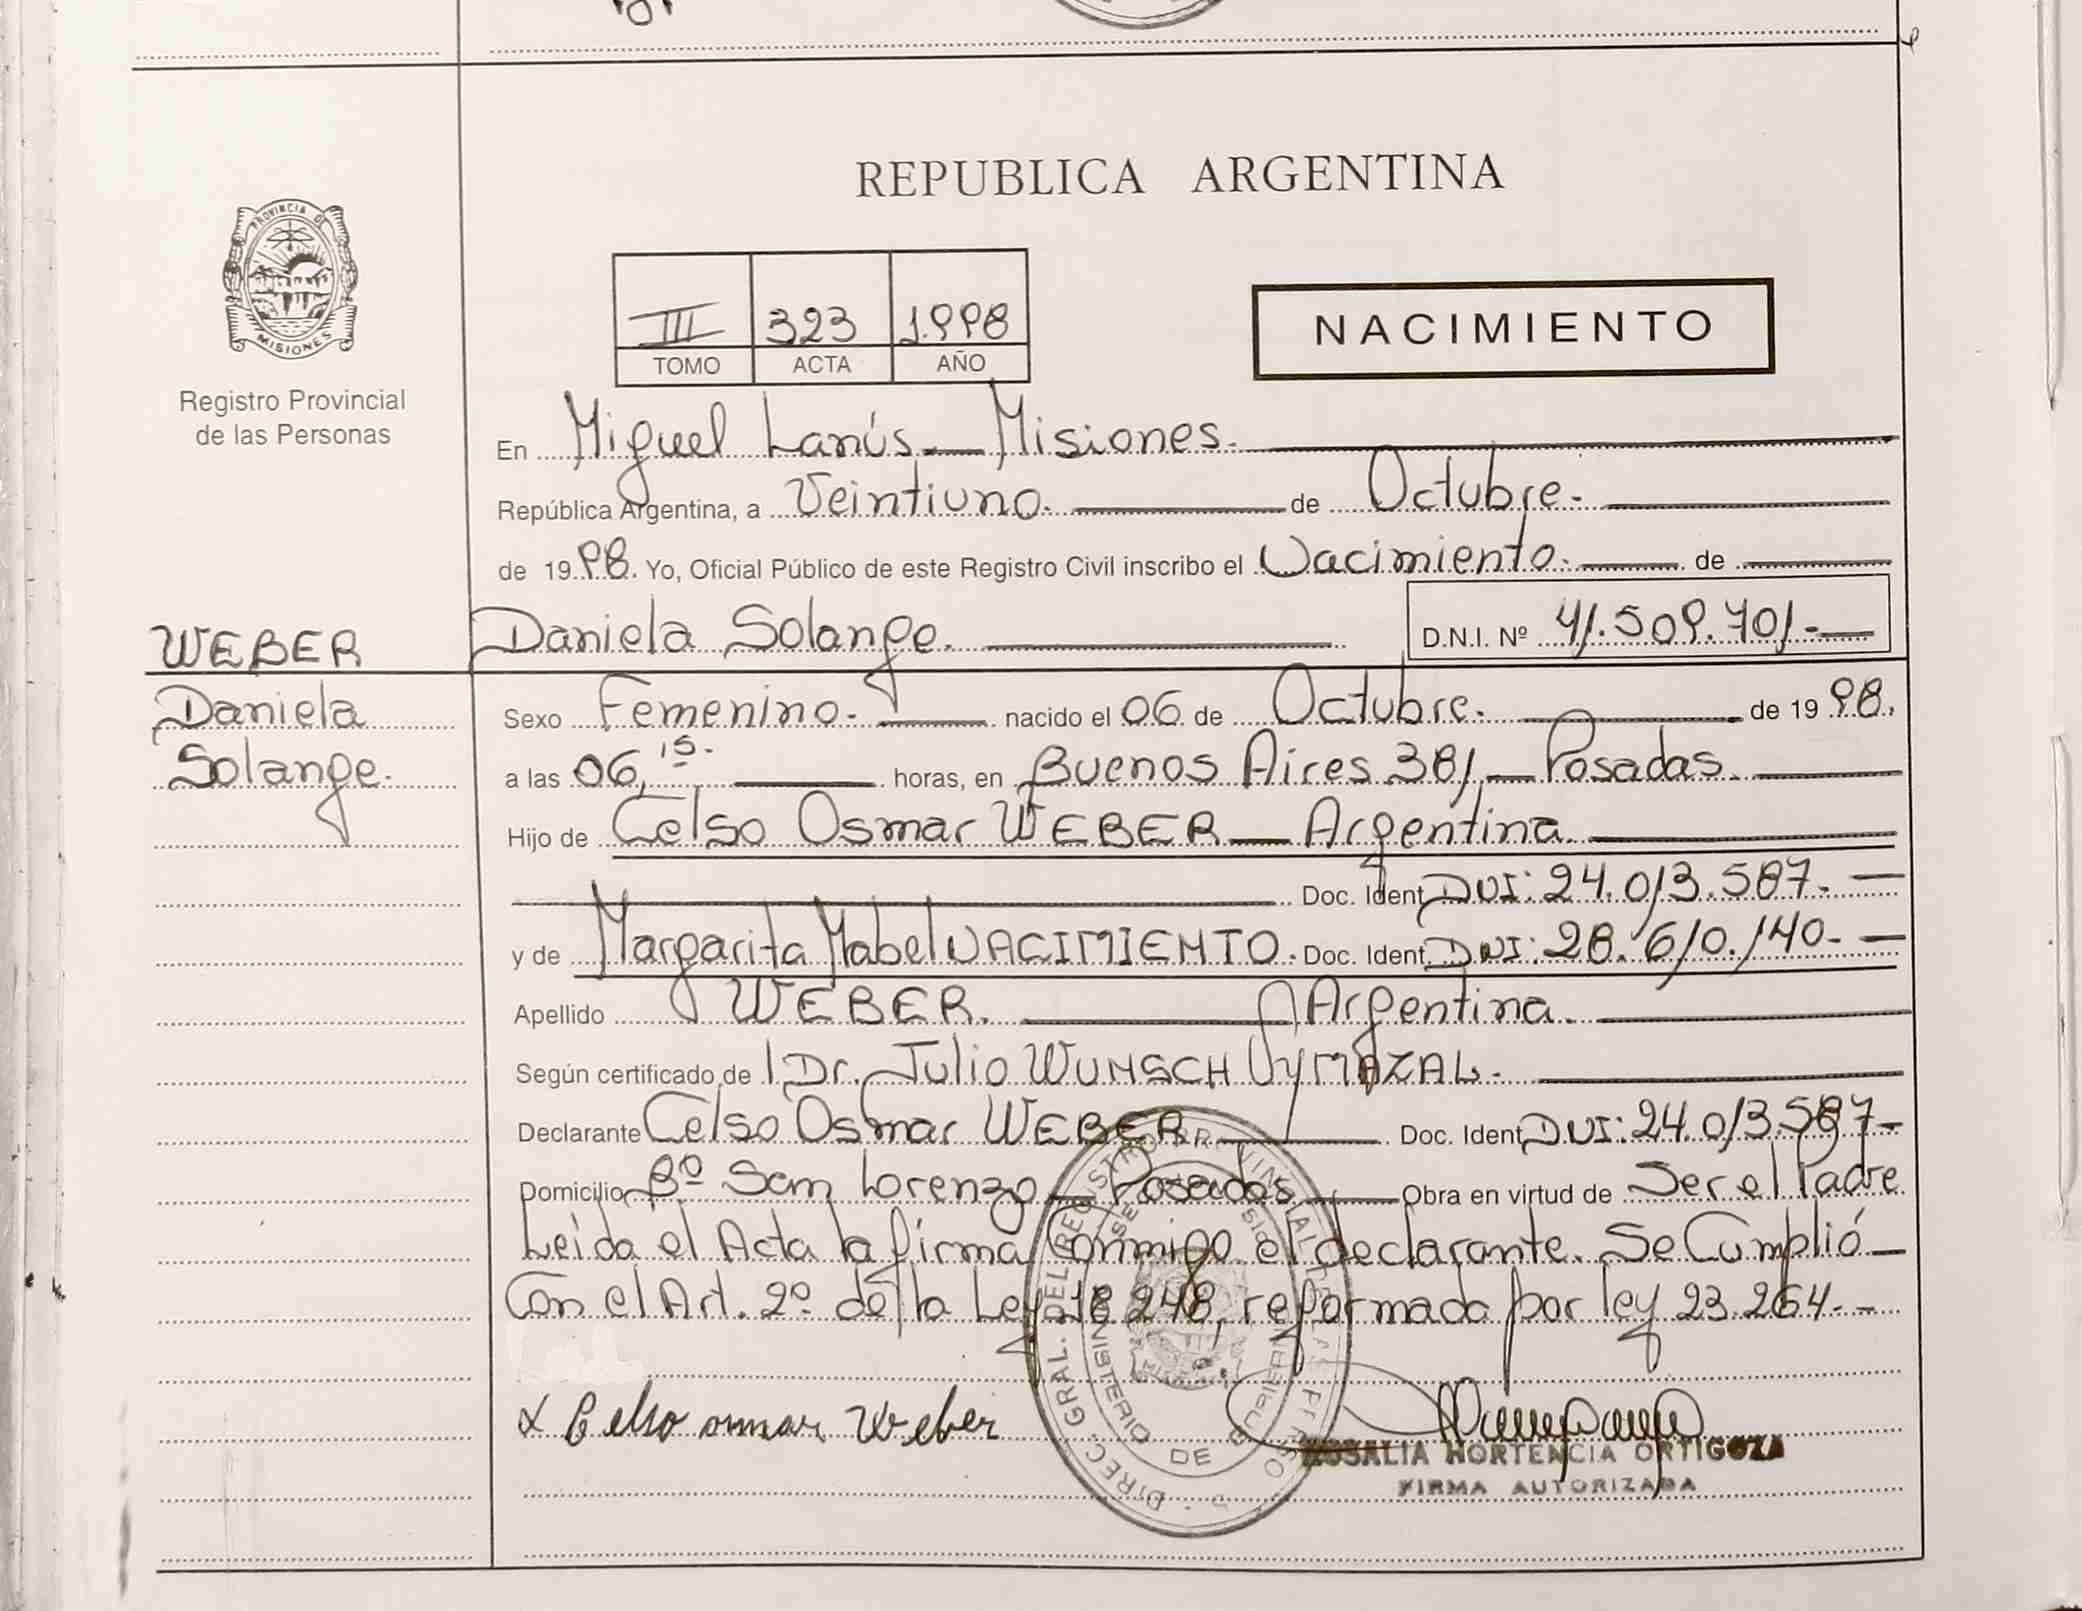 REPUBLICA ARGENTINA
PROVINCIA DE
MISIONES
Registro Provincial
de las Personas
III 323 1.998
TOMO ACTA AÑO
NACIMIENTO
En Miguel Lanús — Misiones.
República Argentina, a Veintiuno. de Octubre.
de 1998. Yo, Oficial Público de este Registro Civil inscribo el Nacimiento. de
WEBER
Daniela
Solange.
Daniela Solange. D.N.I. Nº 41.509.701.-
Sexo Femenino. nacido el 06 de Octubre. de 1998.
a las 06,15. horas, en Buenos Aires 381 — Posadas.
Hijo de Celso Osmar WEBER — Argentina.
Doc. Ident. DNI: 24.013.587.-
y de Margarita Mabel NACIMIENTO. Doc. Ident. DNI: 28.610.140.-
Apellido WEBER. Argentina.
Según certificado de l Dr. Julio WUNSCH VYMAZAL.
Declarante Celso Osmar WEBER Doc. Ident. DNI: 24.013.587-
Domicilio Bº San Lorenzo — Posadas — Obra en virtud de Ser el Padre
Leida el Acta la firma Conmigo el declarante. Se Cumplió
Con el Art. 2º de la Ley 18.248, reformada por ley 23.264.-
x Celso osmar Weber
DIREC. GRAL. DEL REGISTRO PROVINCIAL DE LAS PERSONAS
MINISTERIO DE GOBIERNO
ROSALIA HORTENCIA ORTIGOZA
FIRMA AUTORIZADA